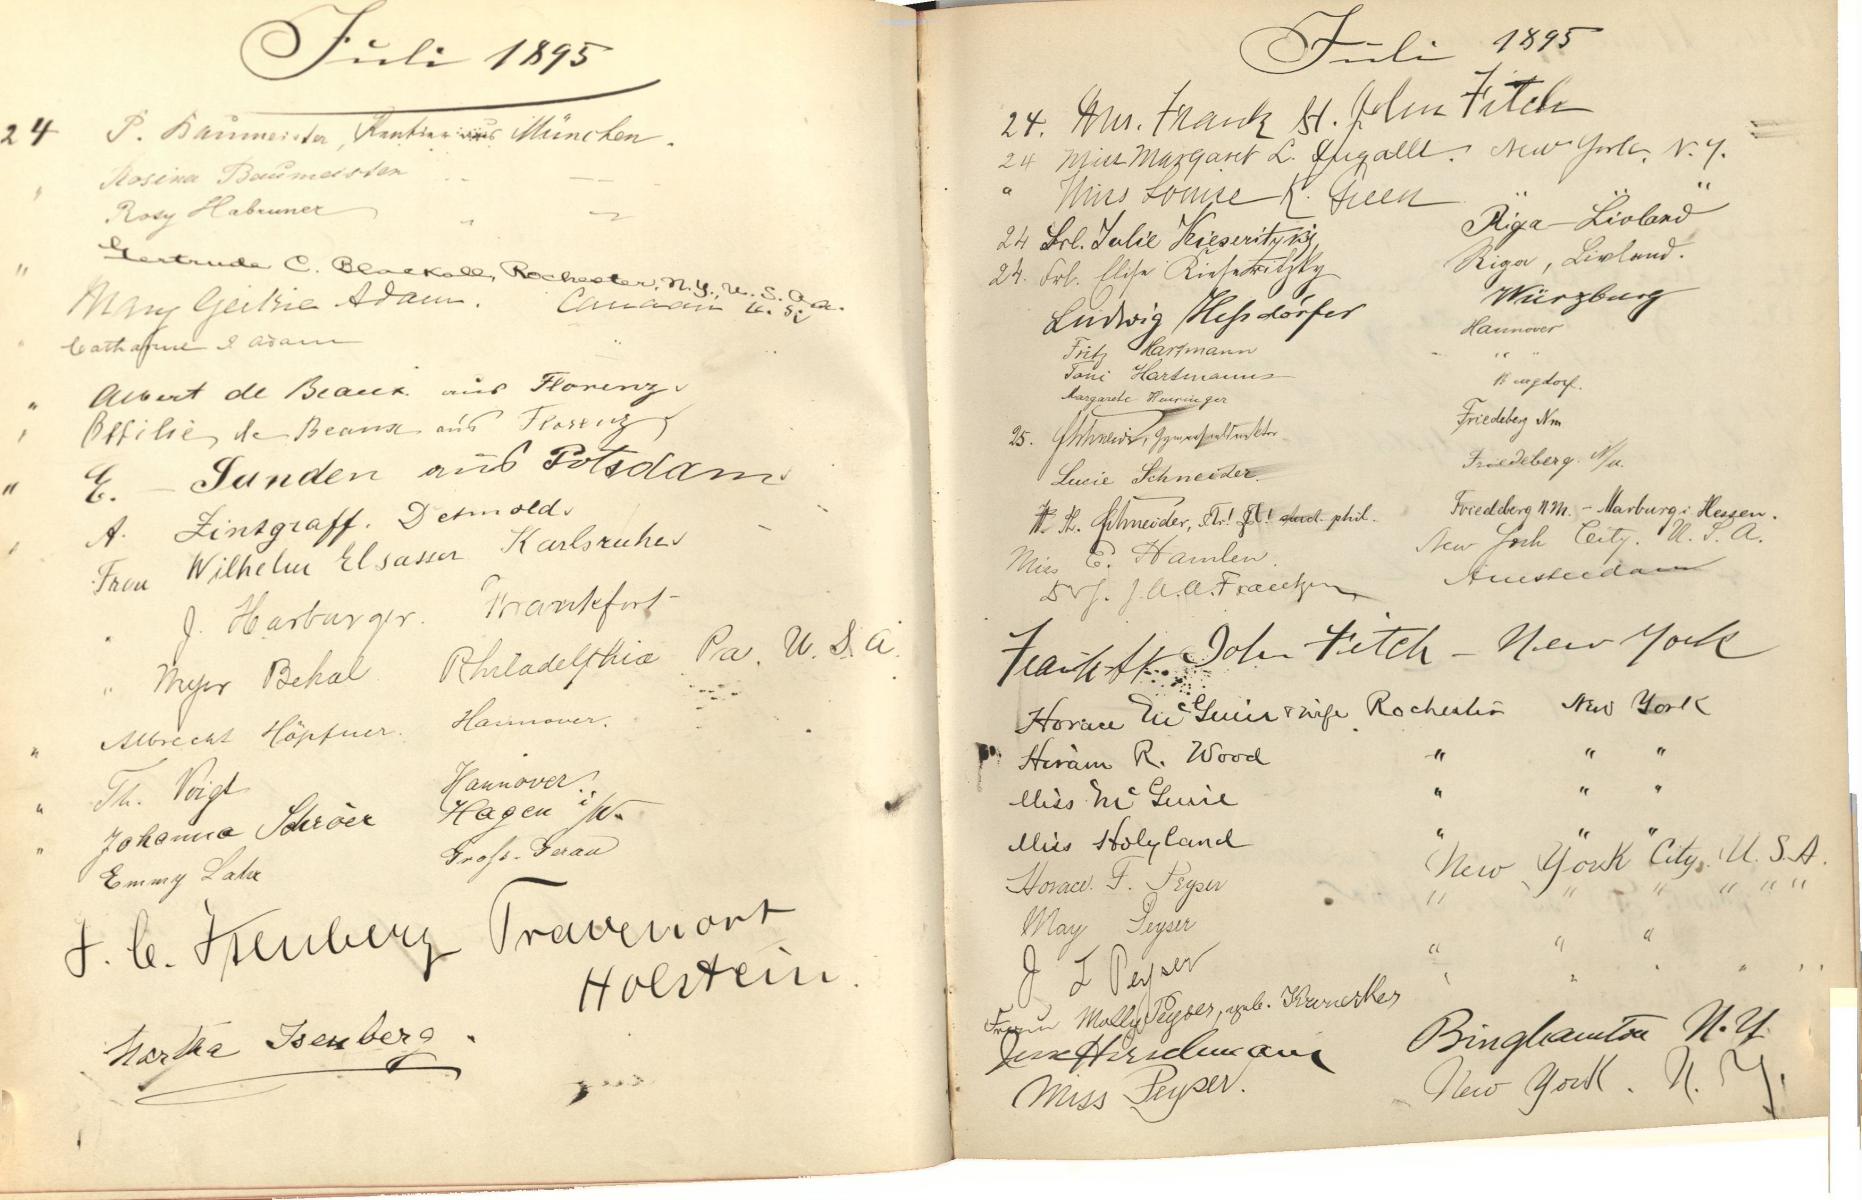 Juli 1895
24 P. Baumeister, München.
" Rosina Baumeister
Rosy Habruner
" Gertrude C. Blackall, Rochester, N.Y., U.S.A.
Mary Geikie Adam. Canada
" Catharine Adam
" Albert de Beaux aus Florenz
" Ottilie de Beaux aus Florenz
" E. Sunden aus Potsdam
" A. Zintgraff. Detmold
Frau Wilhelm Elsasser Karlsruhe
" J. Harburger. Frankfort
" Myer Behal Philadelphia Pa. U.S.A.
" Albrecht Höpfner. Hannover.
" Th. Voigt Hannover.
" Johanna Schröer Hagen i/W.
Emmy Lahr Gross-Gerau
J. C. Isenberg Travemort
Holstein.
Martha Isenberg.
Juli 1895
24. Mrs. Frank St. John Fitch
24 Miss Margaret L. Ingalls. New York, N.Y.
" Miss Louise K. Green " "
24 Frl. Julie Kieseritzky, Riga - Livland
24. Frl. Elise Kieseritzky Riga, Livland.
Ludwig Hessdörfer Würzburg
Fritz Hartmann Hannover
Toni Hartmann " "
Margarete Burgdorf.
25. Schneider, Gymnasialdirektor Friedeberg Nm
Lucie Schneider. Friedeberg N/m.
Schneider, stud. phil. Friedeberg N.M. - Marburg i. Hessen.
Miss E. Hamlen. New York City. U.S.A.
J. A. A. Amsterdam
Frank St. John Fitch - New York
Horace McGuire & wife Rochester New York
Hiram R. Wood " " "
Miss McGuire " " "
Miss Holyland " " "
Horace F. Peyser New York City. U.S.A.
May Peyser " " " " " "
J L Peyser " " "
Frau Molly Peyser, geb. Kronecker " " " "
Hirschmann Binghamton N.Y.
Miss Peyser. New York. N.Y.